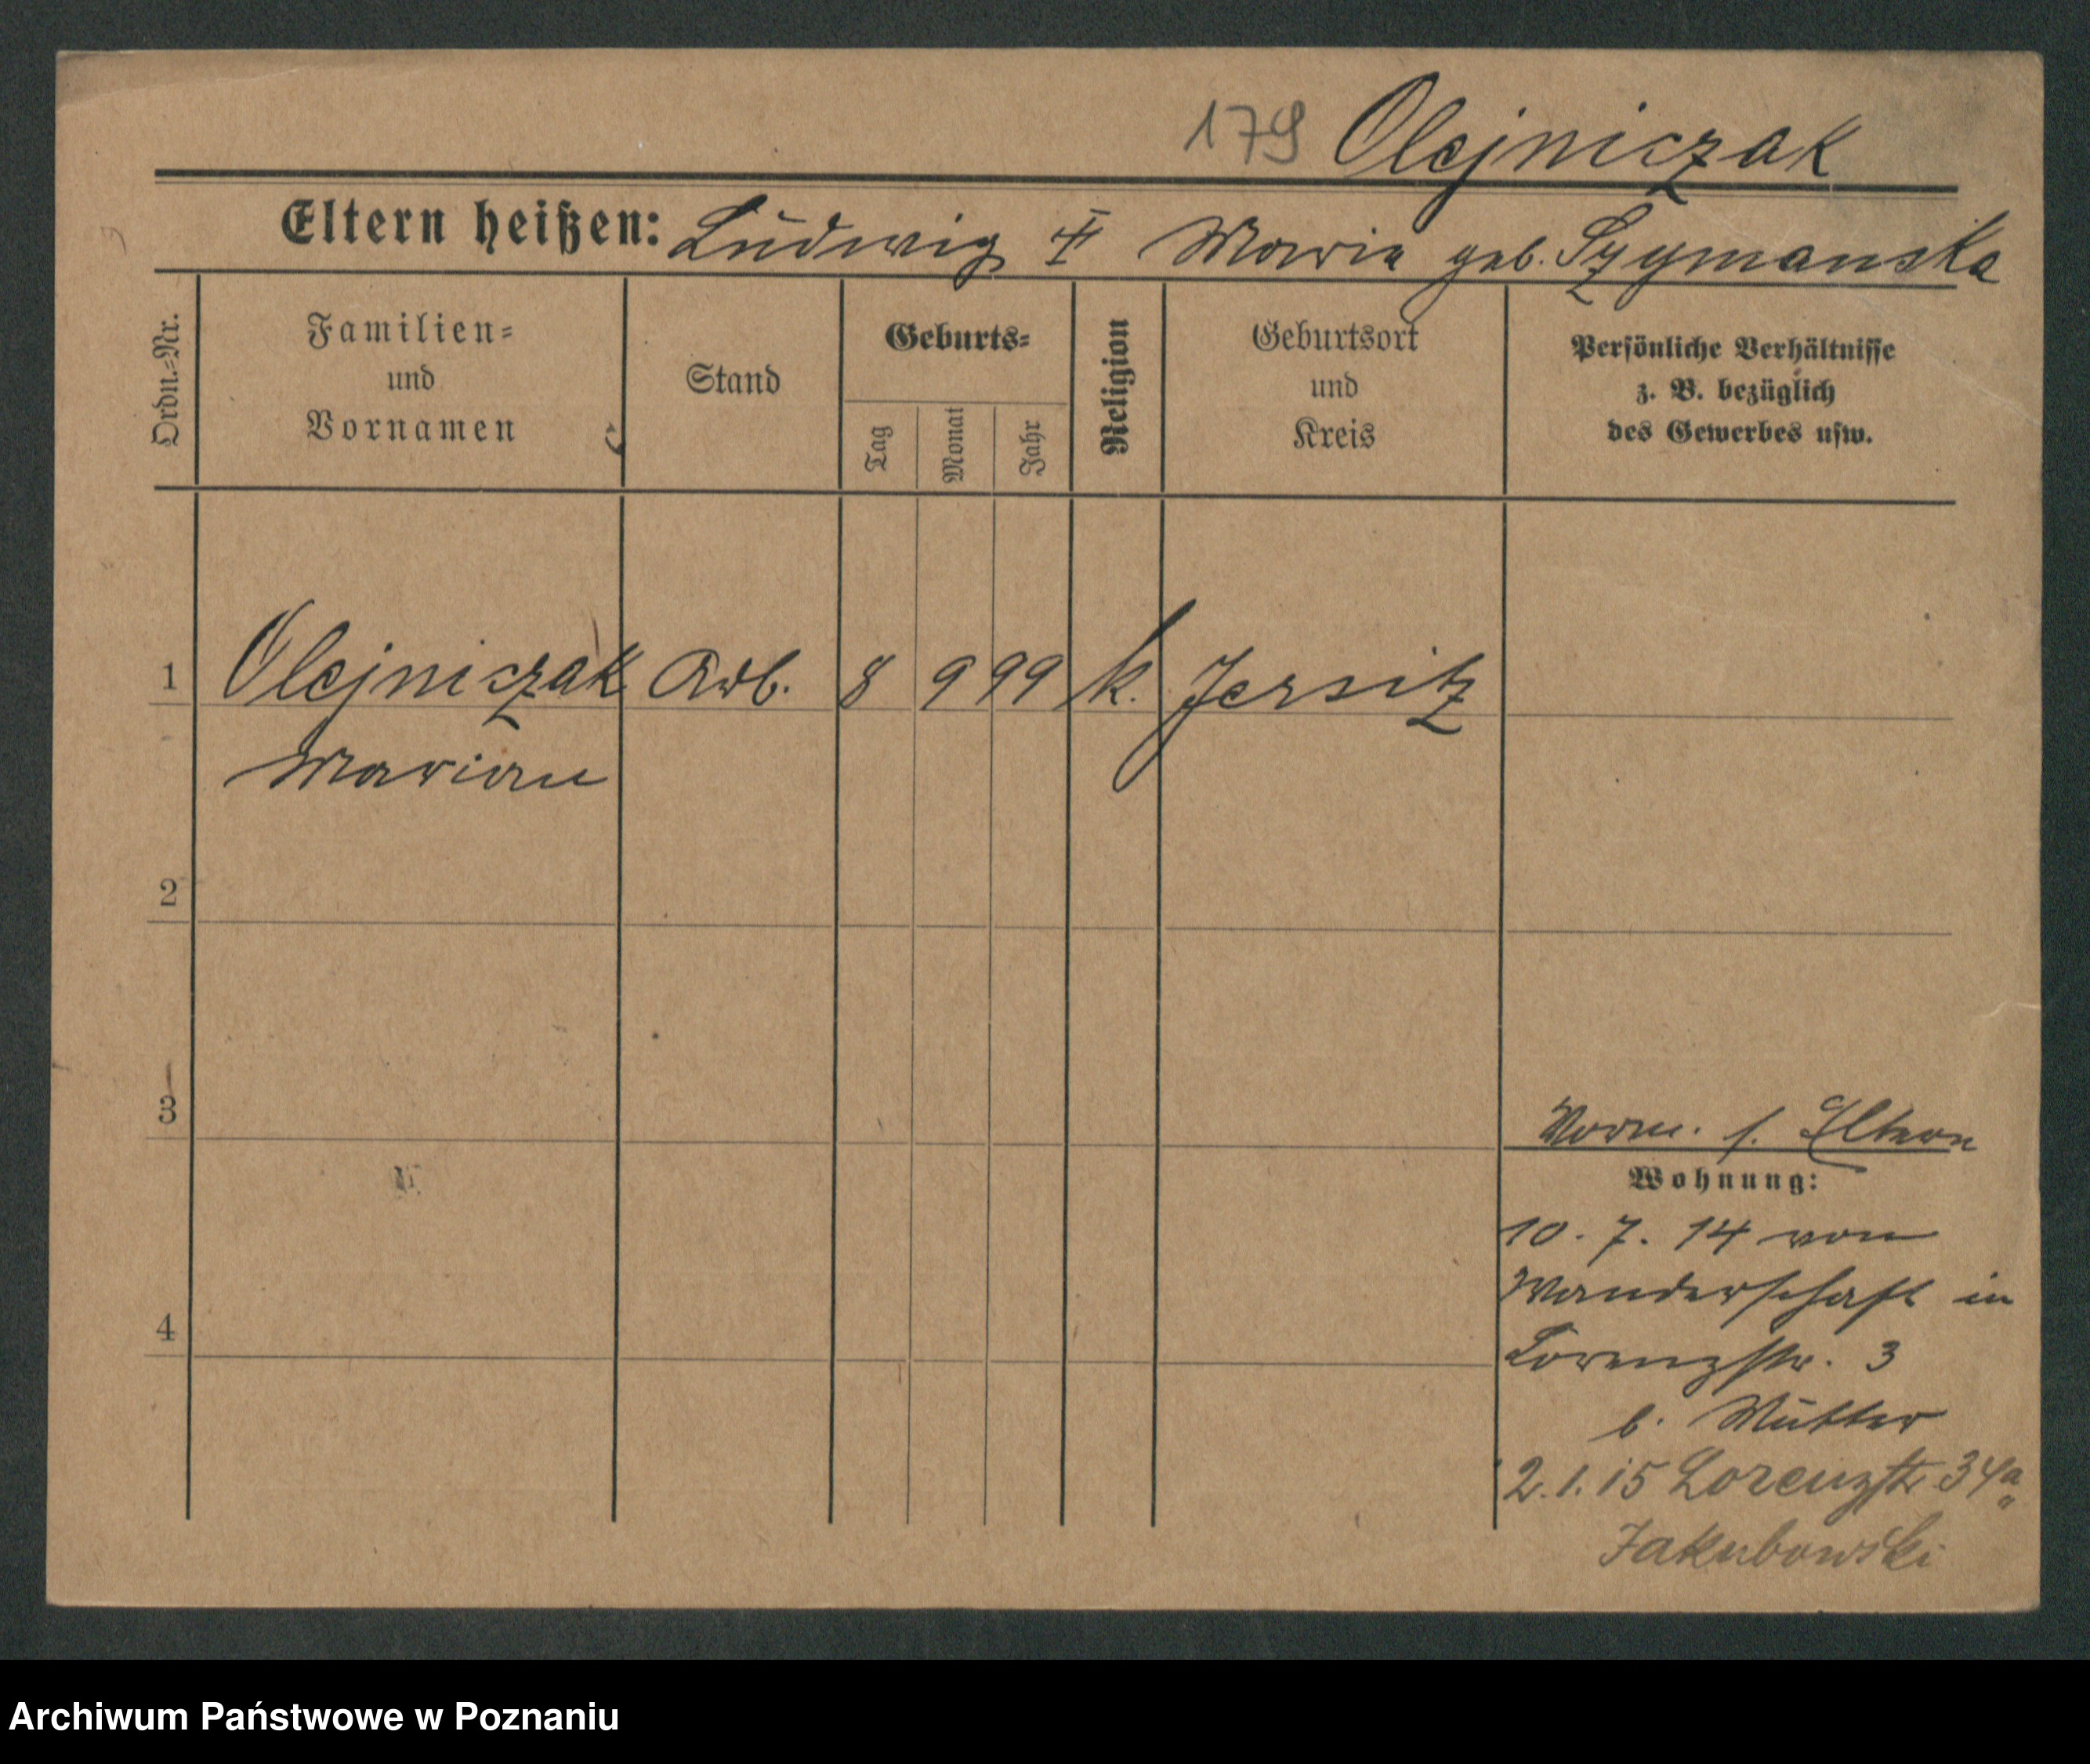 179 Olejniczak
Eltern heißen: Ludwig ☦ Maria geb. Szymanska
Ordn.=Nr.
Familien=
und
Vornamen
Stand
Geburts=
Tag
Monat
Jahr
Religion
Geburtsort
und
Kreis
Persönliche Verhältnisse
z. B. bezüglich
des Gewerbes usw.
1 Olejniczak Arb. 8 9 99 k. Jersitz
Marian
2
3
Vorm. s. Eltern
Wohnung:
10. 7. 14 von
Wanderschaft in
4
Lorenzstr. 3
b. Mutter
2.1.15 Lorenzstr 34a
Jakubowski
Archiwum Państwowe w Poznaniu